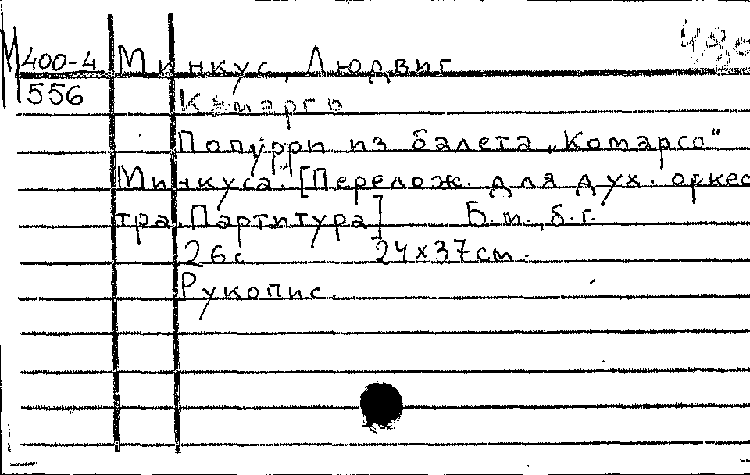 М 400-4 Минкус, Людвиг
556 Камарго
Попурри из балета „Комарго"
Минкуса. [Перелож. для дух. оркес
тра. Партитура] Б.м., б.г.
26с 24х37см.
Рукопис.